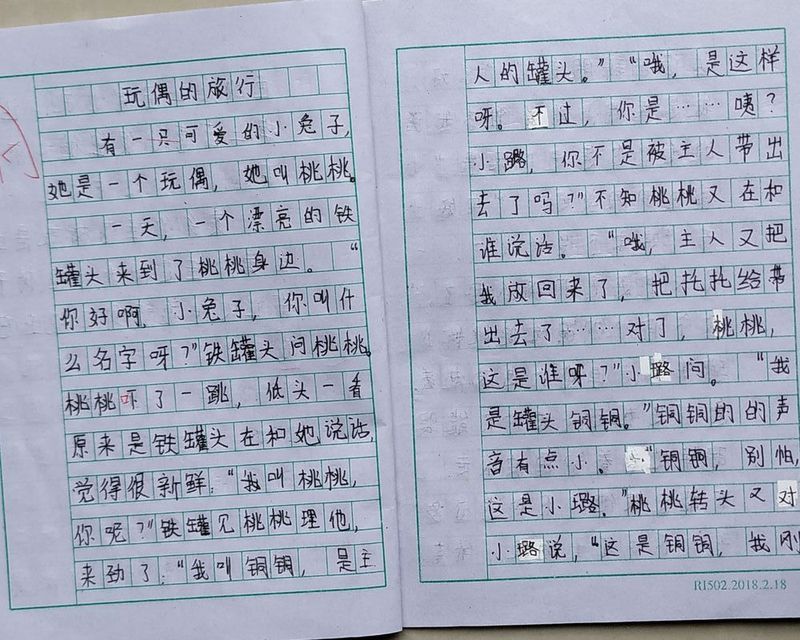 玩偶的旅行
有一只可爱的小兔子，
她是一个玩偶，她叫桃桃。
一天，一个漂亮的铁
罐头来到了桃桃身边。“
你好啊，小兔子，你叫什
么名字呀？”铁罐头问桃桃。
桃桃吓了一跳，低头一看
原来是铁罐头在和她说话，
觉得很新鲜：“我叫桃桃，
你呢？”铁罐见桃桃理他，
来劲了：“我叫铜铜，是主
人的罐头。”“哦，是这样
呀。不过，你是……咦？
小璐，你不是被主人带出
去了吗？”不知桃桃又在和
谁说话。“哦，主人又把
我放回来了，把托托给带
出去了……对了，桃桃，
这是谁呀？”小璐问。“我
是罐头铜铜。”铜铜的的声
音有点小。“铜铜，别怕，
这是小璐。”桃桃转头又对
小璐说，“这是铜铜，我刚
R1502.2018.2.18